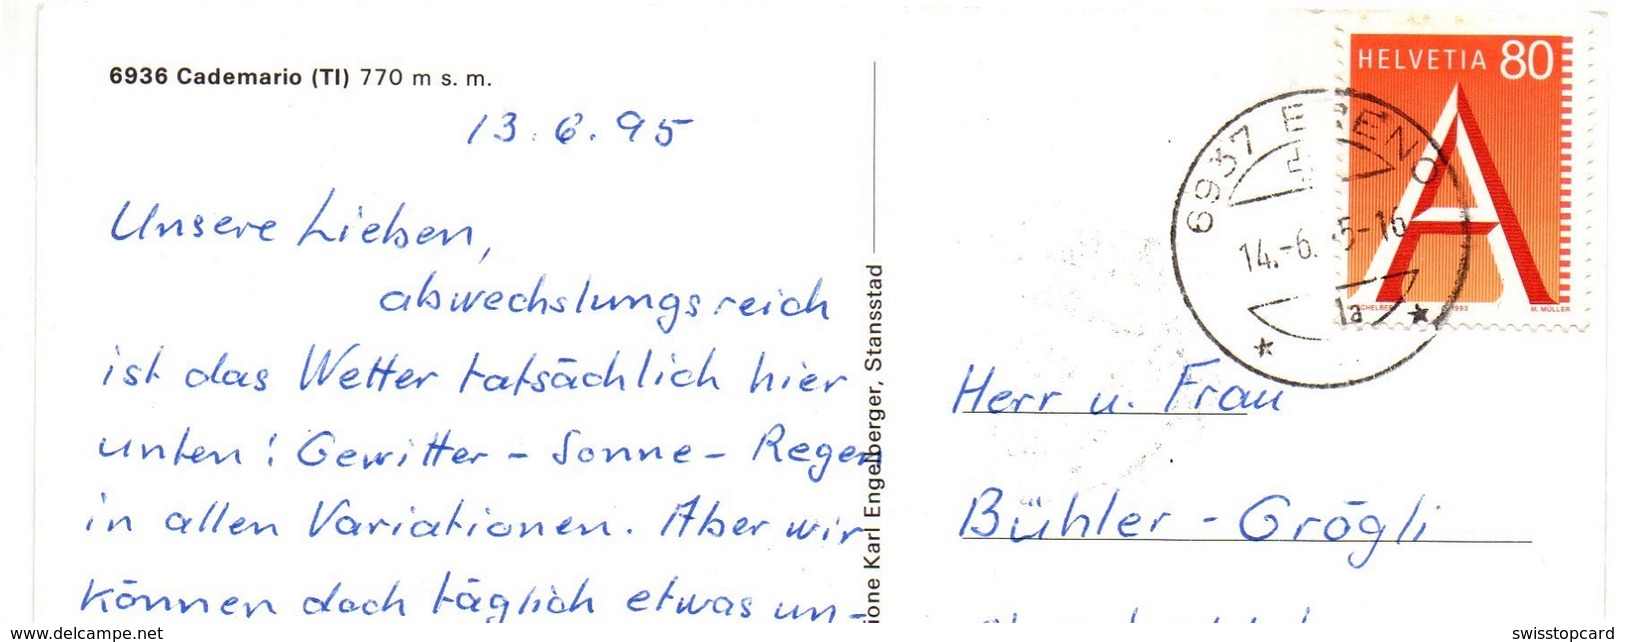 6936 Cademario (TI) 770 m s. m.
13.6.95
Unsere Lieben,
abwechslungsreich
ist das Wetter tatsächlich hier
unten! Gewitter - Sonne - Regen
in allen Variationen. Aber wir
können doch täglich etwas un-
ione Karl Engelberger, Stansstad
HELVETIA 80
1993
M. MÜLLER
6937
14.-6.
5-16
1a
Herr u. Frau
Bühler - Grögli
delcampe.net
swisstopcard